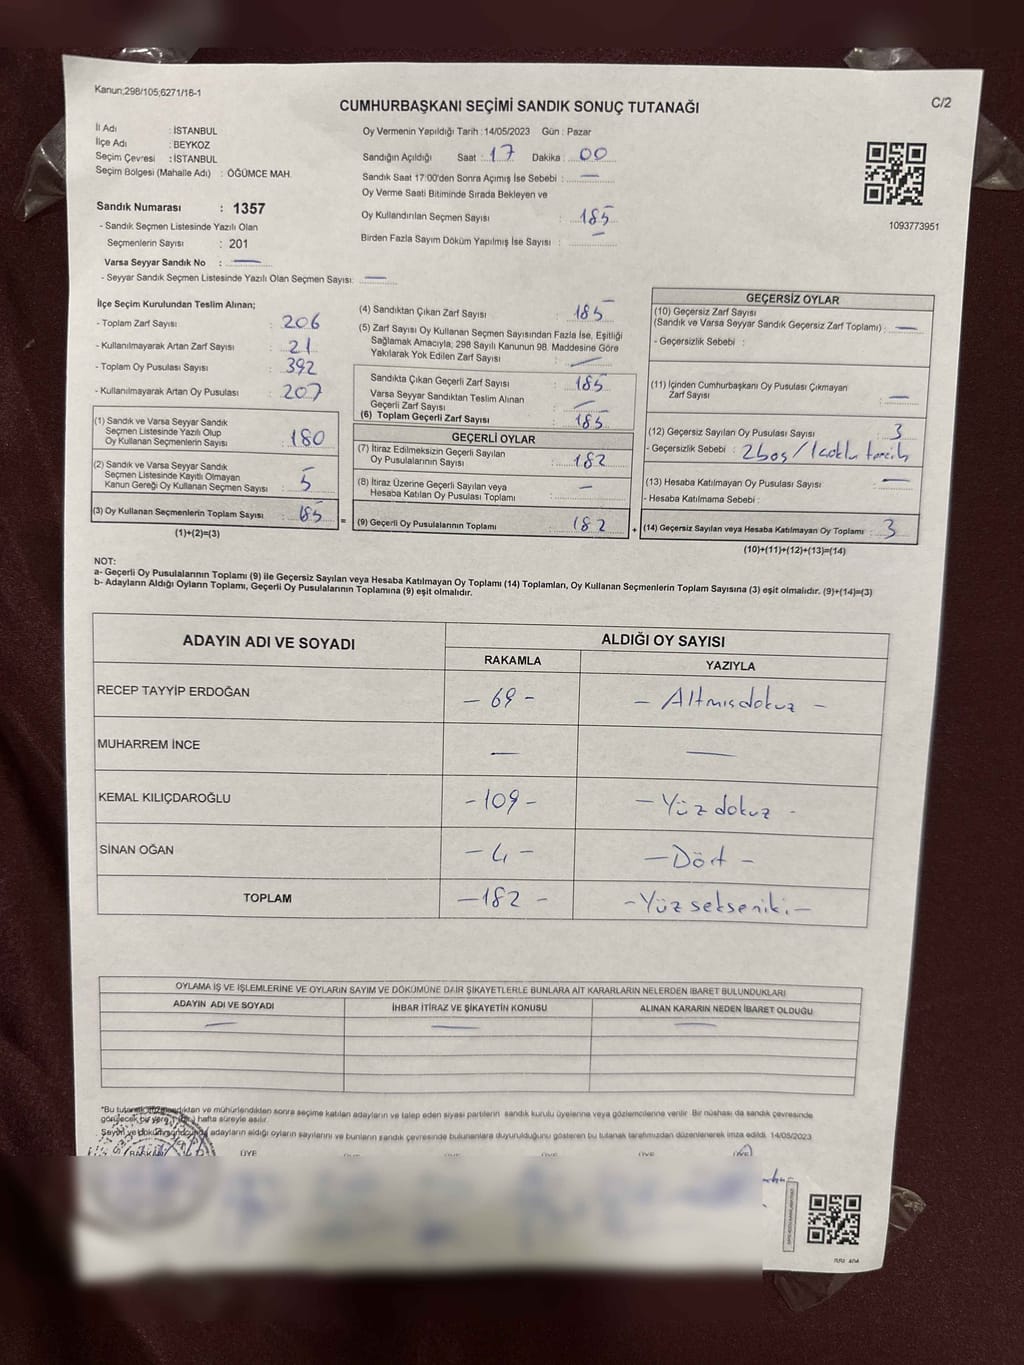 Kanun;298/105;6271/18-1
C/2
CUMHURBAŞKANI SEÇİMİ SANDIK SONUÇ TUTANAĞI
İl Adı : İSTANBUL
İlçe Adı : BEYKOZ
Seçim Çevresi : İSTANBUL
Seçim Bölgesi (Mahalle Adı) : ÖĞÜMCE MAH.
Sandık Numarası : 1357
- Sandık Seçmen Listesinde Yazılı Olan
Seçmenlerin Sayısı : 201
Varsa Seyyar Sandık No : —
- Seyyar Sandık Seçmen Listesinde Yazılı Olan Seçmen Sayısı: —
Oy Vermenin Yapıldığı Tarih : 14/05/2023 Gün : Pazar
Sandığın Açıldığı Saat : 17 Dakika : 00
Sandık Saat 17:00'den Sonra Açımış İse Sebebi : —
Oy Verme Saati Bitiminde Sırada Bekleyen ve
Oy Kullandırılan Seçmen Sayısı : 185
Birden Fazla Sayım Döküm Yapılmış İse Sayısı : —
1093773951
İlçe Seçim Kurulundan Teslim Alınan;
- Toplam Zarf Sayısı : 206
- Kullanılmayarak Artan Zarf Sayısı : 21
- Toplam Oy Pusulası Sayısı : 392
- Kullanılmayarak Artan Oy Pusulası : 207
(1) Sandık ve Varsa Seyyar Sandık
Seçmen Listesinde Yazılı Olup
Oy Kullanan Seçmenlerin Sayısı : 180
(2) Sandık ve Varsa Seyyar Sandık
Seçmen Listesinde Kayıtlı Olmayan
Kanun Gereği Oy Kullanan Seçmen Sayısı : 5
(3) Oy Kullanan Seçmenlerin Toplam Sayısı : 185
(1)+(2)=(3)
=
(4) Sandıktan Çıkan Zarf Sayısı : 185
(5) Zarf Sayısı Oy Kullanan Seçmen Sayısından Fazla İse, Eşitliği
Sağlamak Amacıyla; 298 Sayılı Kanunun 98. Maddesine Göre
Yakılarak Yok Edilen Zarf Sayısı : —
Sandıkta Çıkan Geçerli Zarf Sayısı : 185
Varsa Seyyar Sandıktan Teslim Alınan
Geçerli Zarf Sayısı : —
(6) Toplam Geçerli Zarf Sayısı : 185
GEÇERLİ OYLAR
(7) İtiraz Edilmeksizin Geçerli Sayılan
Oy Pusulalarının Sayısı : 182
(8) İtiraz Üzerine Geçerli Sayılan veya
Hesaba Katılan Oy Pusulası Toplamı : —
(9) Geçerli Oy Pusulalarının Toplamı : 182
+
GEÇERSİZ OYLAR
(10) Geçersiz Zarf Sayısı
(Sandık ve Varsa Seyyar Sandık Geçersiz Zarf Toplamı) : —
- Geçersizlik Sebebi :
(11) İçinden Cumhurbaşkanı Oy Pusulası Çıkmayan
Zarf Sayısı : —
(12) Geçersiz Sayılan Oy Pusulası Sayısı : 3
- Geçersizlik Sebebi : 2 boş / 1 çoklu tercih
(13) Hesaba Katılmayan Oy Pusulası Sayısı : —
- Hesaba Katılmama Sebebi :
(14) Geçersiz Sayılan veya Hesaba Katılmayan Oy Toplamı : 3
(10)+(11)+(12)+(13)=(14)
NOT:
a- Geçerli Oy Pusulalarının Toplamı (9) ile Geçersiz Sayılan veya Hesaba Katılmayan Oy Toplamı (14) Toplamları, Oy Kullanan Seçmenlerin Toplam Sayısına (3) eşit olmalıdır. (9)+(14)=(3)
b- Adayların Aldığı Oyların Toplamı, Geçerli Oy Pusulalarının Toplamına (9) eşit olmalıdır.
ADAYIN ADI VE SOYADI ALDIĞI OY SAYISI
RAKAMLA YAZIYLA
RECEP TAYYİP ERDOĞAN - 69 - - Altmışdokuz -
MUHARREM İNCE — —
KEMAL KILIÇDAROĞLU - 109 - - Yüz dokuz -
SİNAN OĞAN - 4 - - Dört -
TOPLAM - 182 - - Yüz seksen iki -
OYLAMA İŞ VE İŞLEMLERİNE VE OYLARIN SAYIM VE DÖKÜMÜNE DAİR ŞİKAYETLERLE BUNLARA AİT KARARLARIN NELERDEN İBARET BULUNDUKLARI
ADAYIN ADI VE SOYADI İHBAR İTİRAZ VE ŞİKAYETİN KONUSU ALINAN KARARIN NEDEN İBARET OLDUĞU
— — —
ve mühürlendikten sonra seçime katılan adayların ve talep eden siyasi partilerin sandık kurulu üyelerine veya gözlemcilerine verilir. Bir nüshası da sandık çevresinde
görülecek bir yere hafta süreyle asılır.
adayların aldığı oyların sayılarını ve bunların sandık çevresinde bulunanlara duyurulduğunu gösteren bu tutanak tarafımızdan düzenlenerek imza edildi. 14/05/2023
BAŞKAN ÜYE ÜYE ÜYE ÜYE ÜYE ÜYE